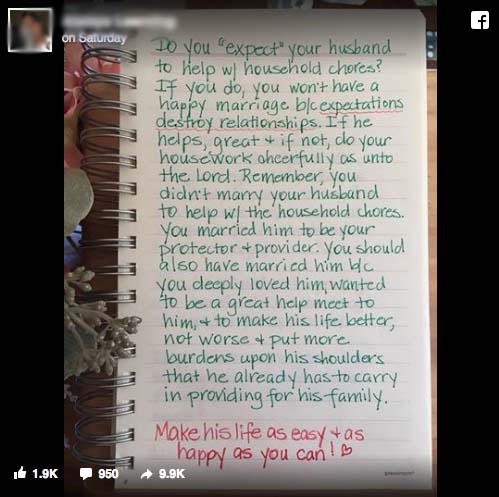 on Saturday
Do you "expect" your husband
to help w/ household chores?
If you do, you won't have a
happy marriage b/c expectations
destroy relationships. If he
helps, great + if not, do your
housework cheerfully as unto
the Lord. Remember, you
didn't marry your husband
to help w/ the household chores.
You married him to be your
protector + provider. You should
also have married him b/c
you deeply loved him, wanted
to be a great help meet to
him, + to make his life better,
not worse + put more
burdens upon his shoulders
that he already has to carry
in providing for his family.
Make his life as easy + as
happy as you can!
1.9K 950 9.9K